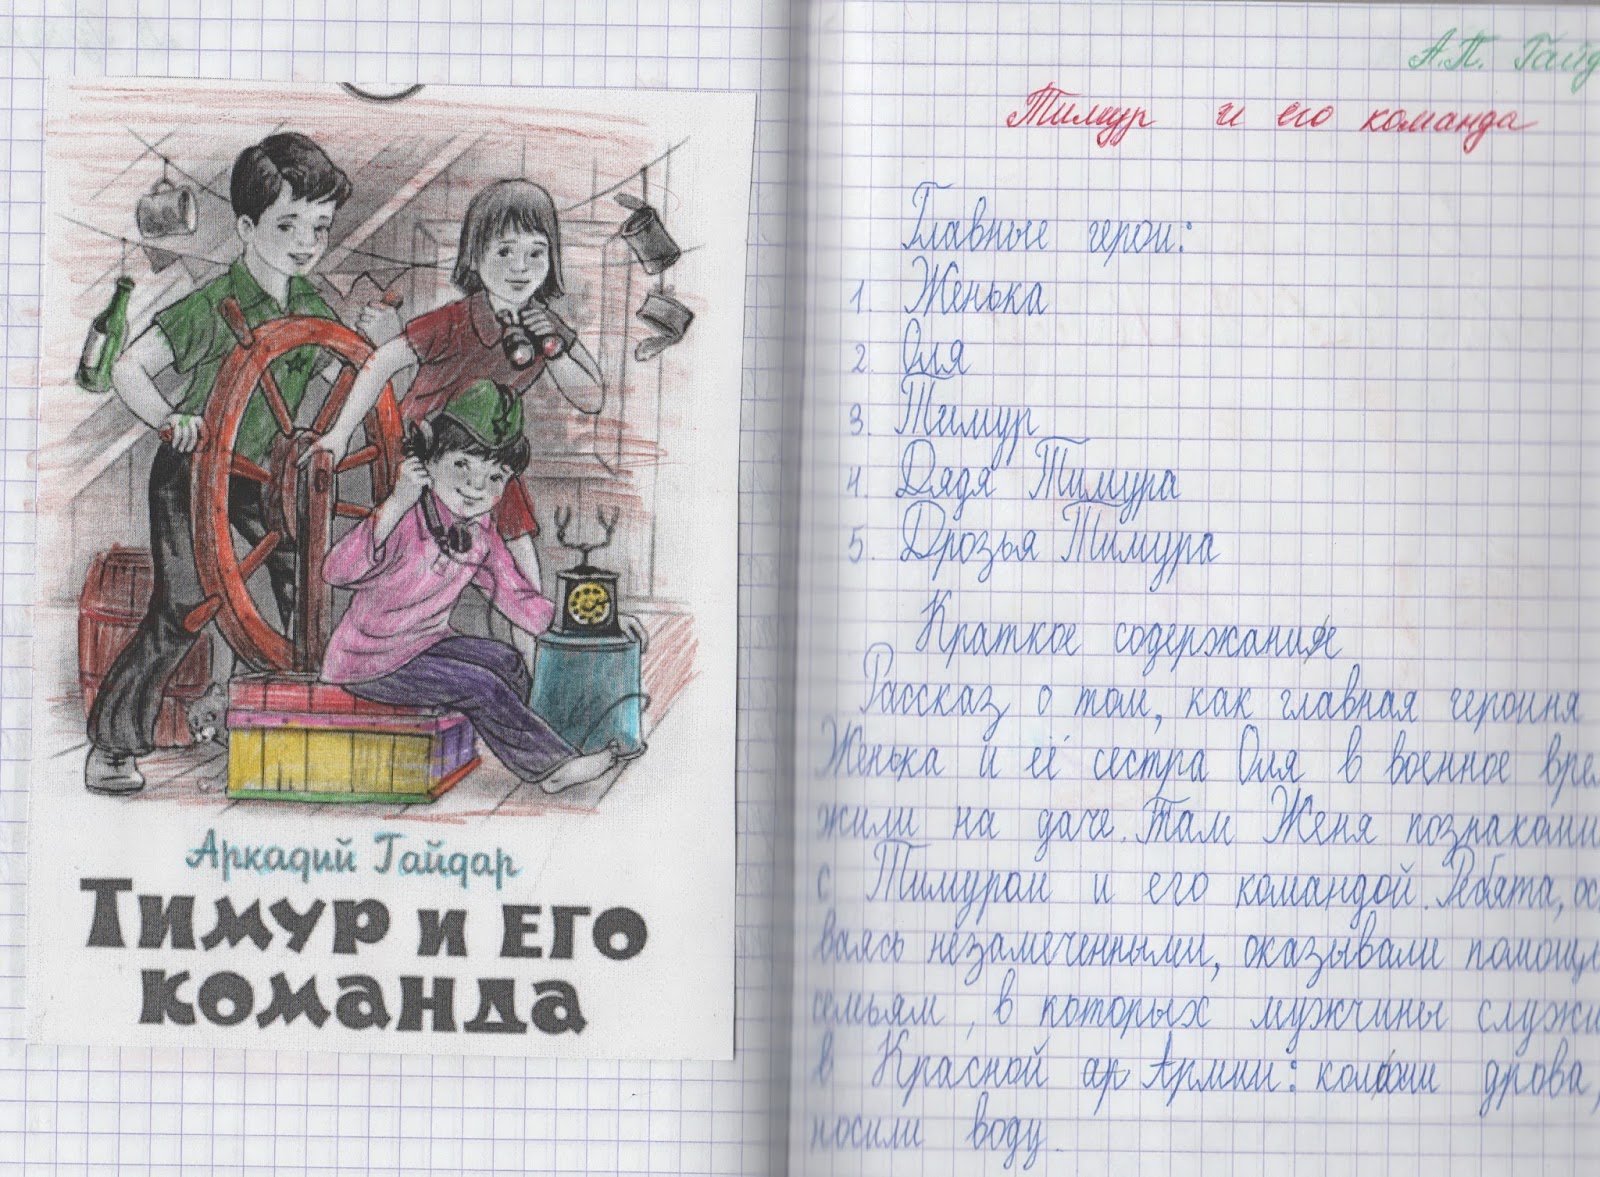 Аркадий Гайдар
Тимур и его
команда
А.П. Гайд
Тимур и его команда
Главные герои:
1. Женька
2. Оля
3. Тимур
4. Дядя Тимура
5. Друзья Тимура
Краткое содержание
Рассказ о том, как главная героиня
Женька и её сестра Оля в военное вре
жили на даче. Там Женя познакоми
с Тимуром и его командой. Ребята, ос
ваясь незамеченными, оказывали помощь
семьям, в которых мужчины служи
в Красной ар Армии: кололи дрова,
носили воду.